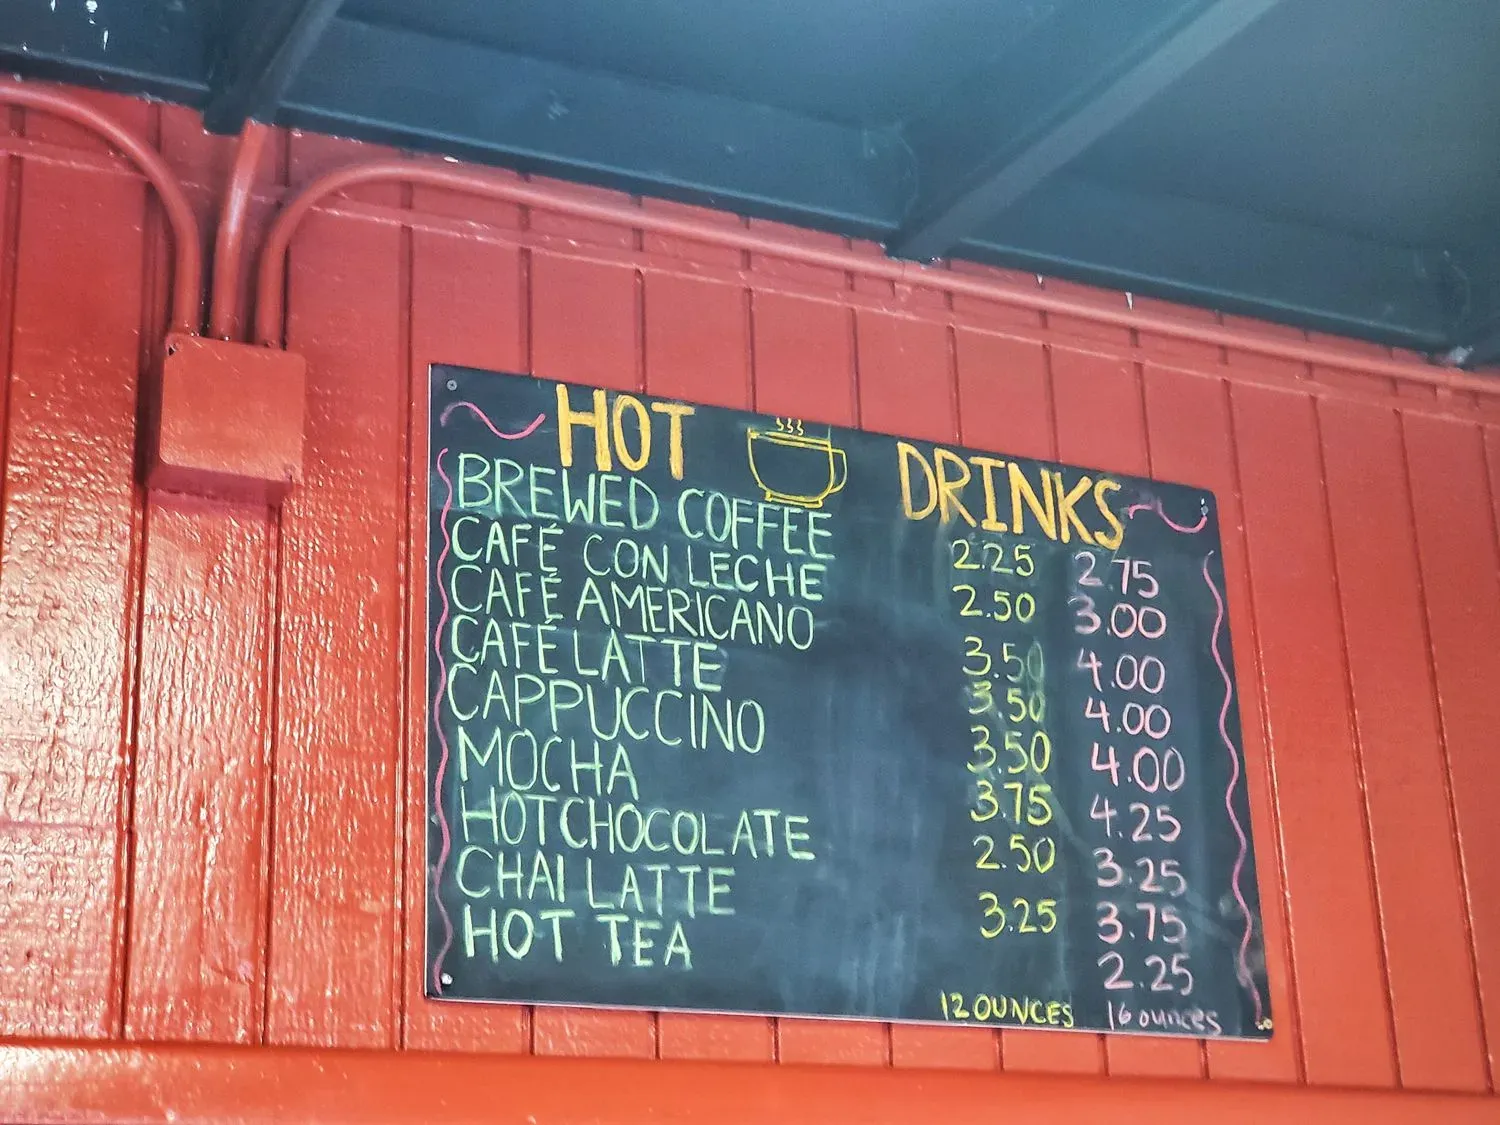 HOT DRINKS
BREWED COFFEE 2.25 2.75
CAFÉ CON LECHE 2.50 3.00
CAFÉ AMERICANO 3.50 4.00
CAFÉ LATTE 3.50 4.00
CAPPUCCINO 3.50 4.00
MOCHA 3.75 4.25
HOT CHOCOLATE 2.50 3.25
CHAI LATTE 3.25 3.75
HOT TEA 2.25
12 OUNCES 16 ounces